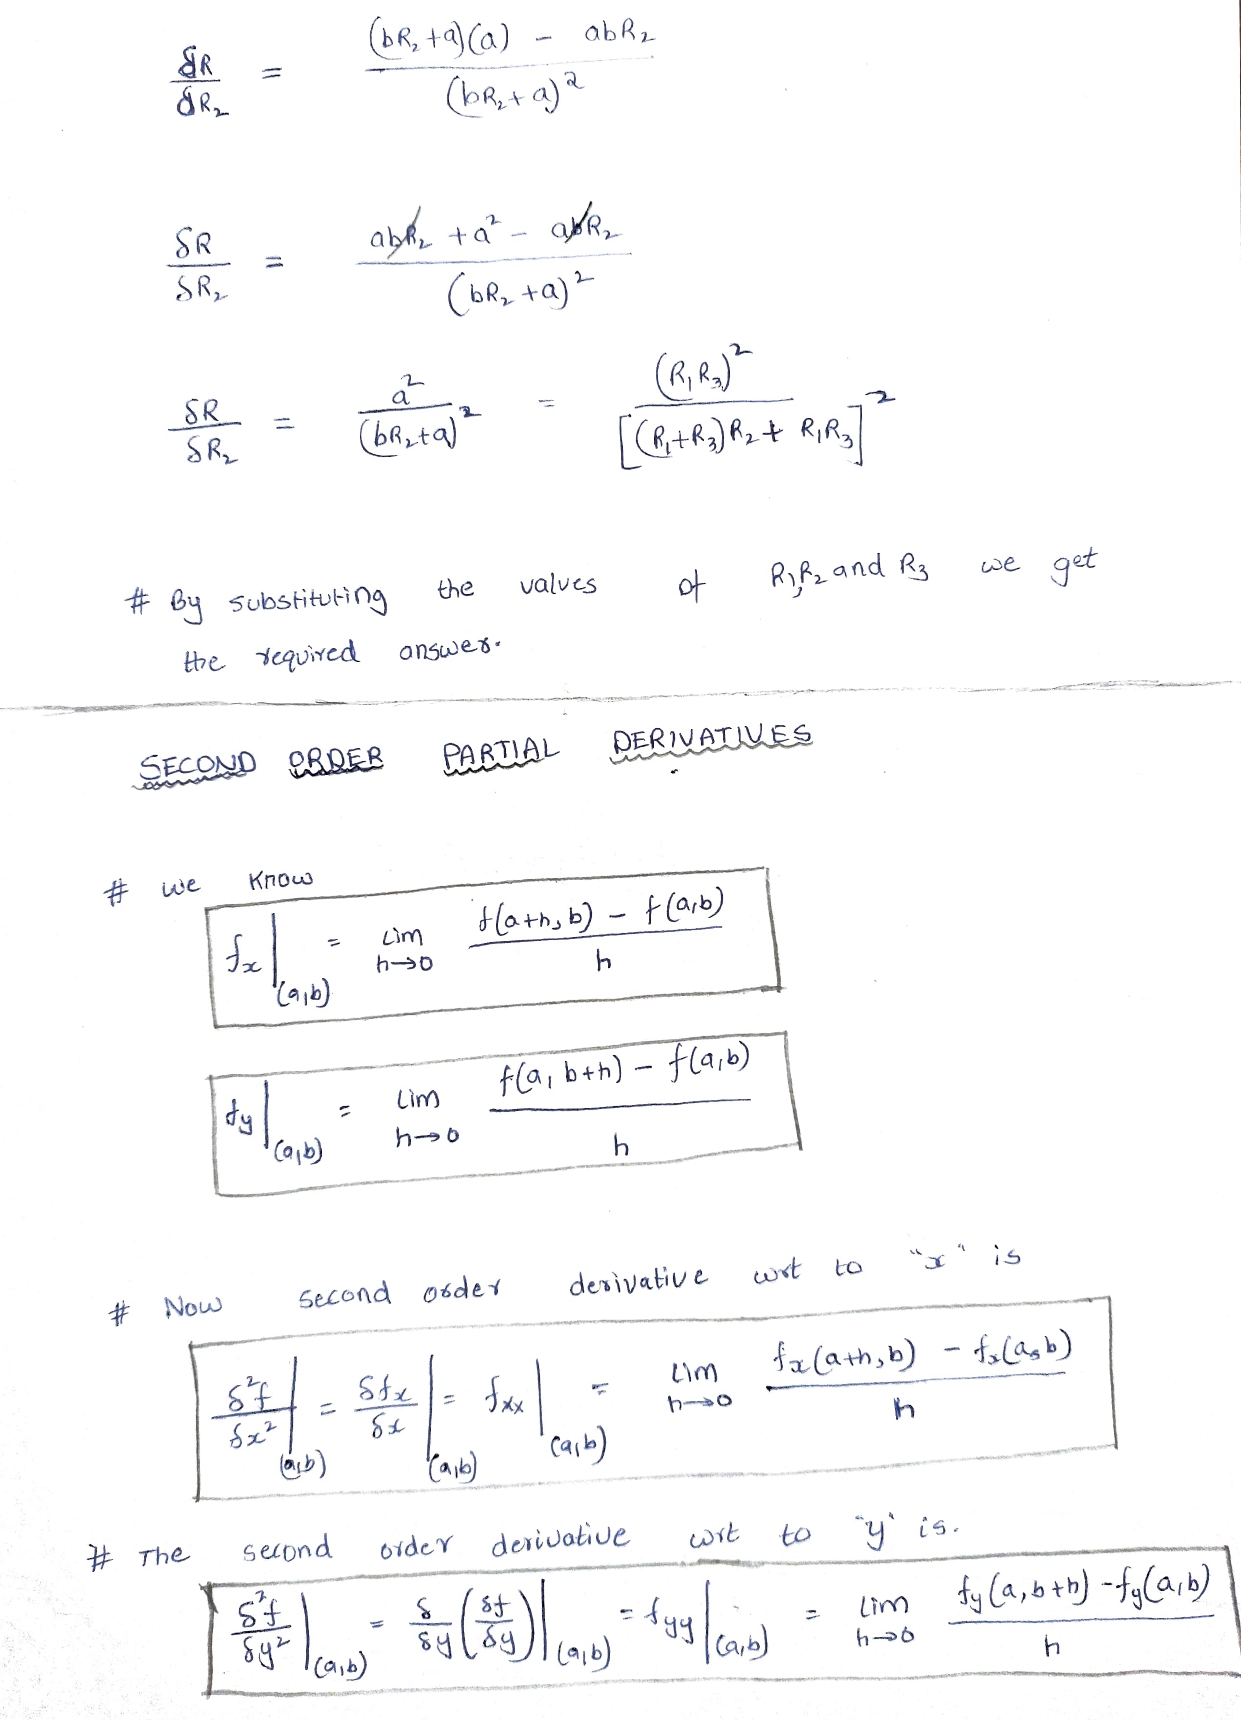 δR/δR₂ = (bR₂+a)(a) - abR₂ / (bR₂+a)²
δR/δR₂ = abR₂ + a² - abR₂ / (bR₂+a)²
δR/δR₂ = a²/(bR₂+a)² = (R₁R₃)² / [(R₁+R₃)R₂ + R₁R₃]²
# By substituting the values of R₁,R₂ and R₃ we get
the required answer.
SECOND ORDER PARTIAL DERIVATIVES
# we know
fx|(a,b) = Lim h→0 f(a+h,b) - f(a,b) / h
fy|(a,b) = Lim h→0 f(a, b+h) - f(a,b) / h
# Now second order derivative wrt to "x" is
δ²f/δx²|(a,b) = δfx/δx|(a,b) = fxx|(a,b) = Lim h→0 fx(a+h,b) - fx(a,b) / h
# The second order derivative wrt to "y" is.
δ²f/δy²|(a,b) = δ/δy(δf/δy)|(a,b) = fyy|(a,b) = Lim h→0 fy(a,b+h) - fy(a,b) / h